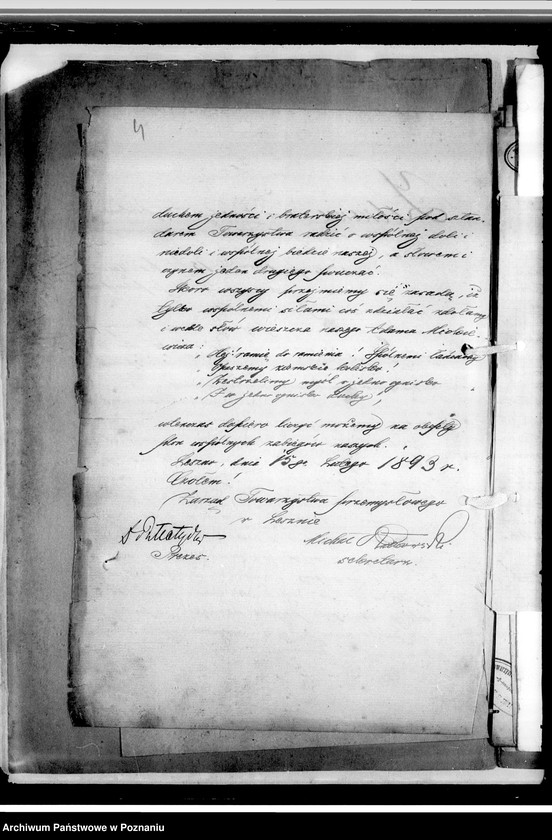 4
duchem jedności i braterskiej miłości pod sztan-
darem Towarzystwa radzić o wspólnej doli i
niedoli i wspólnej biedzie naszej, a słowem i
czynem jeden drugiego pouczać.
Skoro wszyscy przejmiemy się zasadą, iż
tylko wspólnemi siłami coś zdziałać zdołamy
i wedle słów wieszcza naszego Adama Mickie-
wicza:
„Hej! ramię do ramienia! Spólnemi łańcuchy
Opaszmy ziemskie kolisko!
„Zestrzelmy myśl w jedno ognisko
„I w jedno ognisko duchy!
wtenczas dopiero liczyć możemy na obfity
plon wspólnych zabiegów naszych.
Leszno, dnia 15go Lutego 1893 r.
Czołem!
Zarząd Towarzystwa przemysłowego
w Lesznie
Prezes.
Michał
sekretarz.
Archiwum Państwowe w Poznaniu